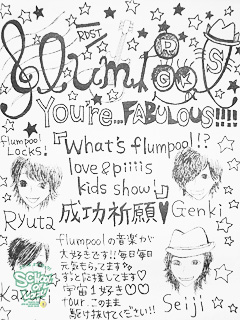 RDST
flumpool
P
G M S
You're... FABULOUS!!!!
flumpool
LOCKS!
『What's flumpool!?
love & piiiis
kids show♪』
成功祈願♥
Ryuta
Genki
flumpoolの音楽が
大好きです!!毎日毎日
元気もらってます
ずっと応援してます♡♡
宇宙1好き♡♡
tour、このまま
駆け抜けてください!!
Kazuki
Seiji